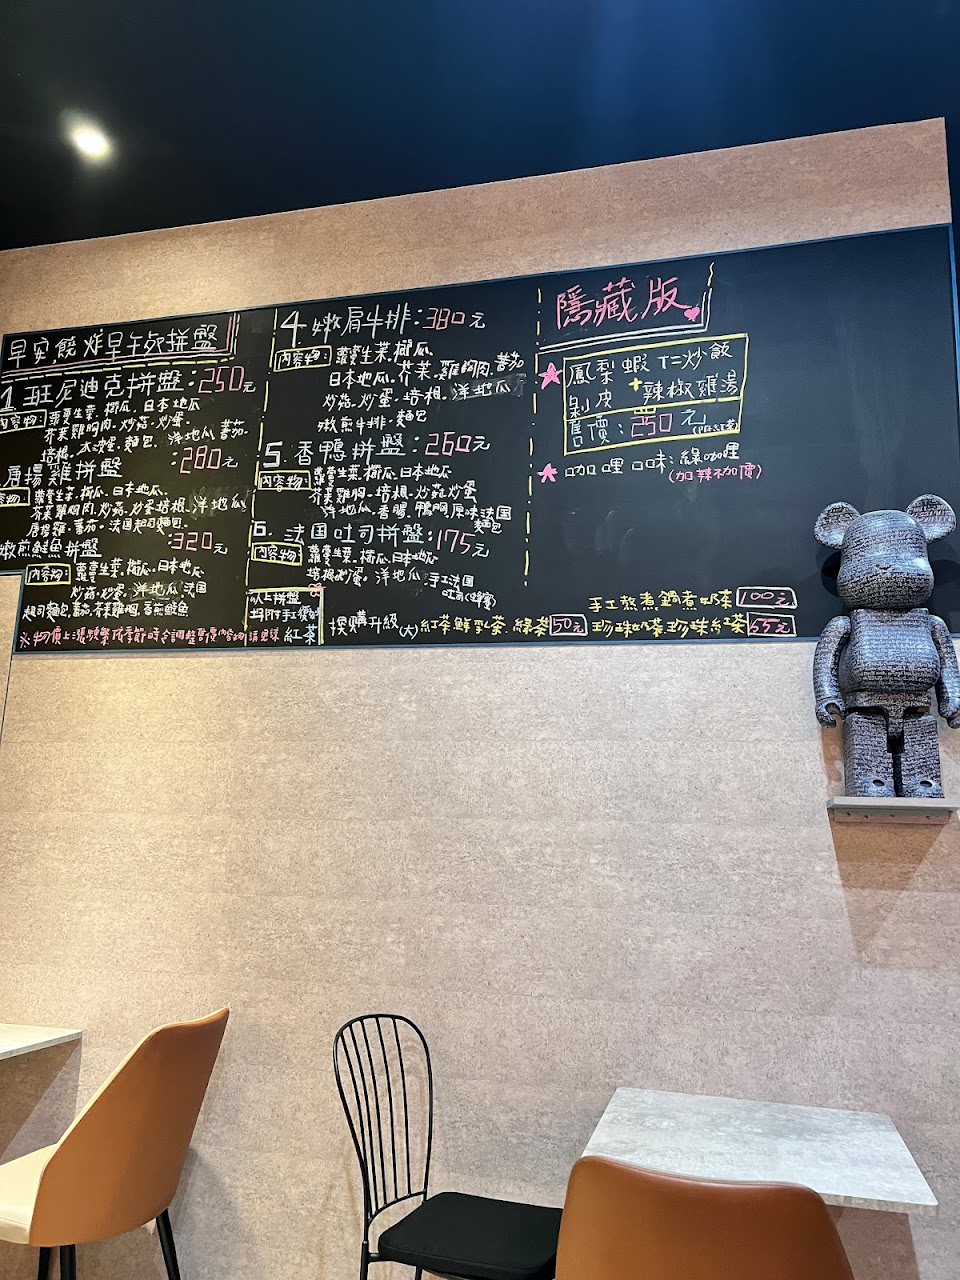 早安,饒
早午晚拼盤
1.班尼迪克拼盤:250元
內容物:蘿蔓生菜.櫛瓜.日本地瓜
芥茉雞胸肉.炒菇.炒蛋.
培根. 麵包. 洋地瓜 蕃茄.
唐揚雞拼盤 :280元
蘿蔓生菜.櫛瓜.日本地瓜.
芥茉雞胸肉.炒菇.炒蛋培根.洋地瓜
唐揚雞.蕃茄.法国起司麵包.
嫩煎鮭魚拼盤 :320元
內容物:蘿蔓生菜.櫛瓜.日本地瓜
炒菇.炒蛋.洋地瓜 法国
起司麵包 蕃茄.芥茉雞胸.香煎鮭魚
4.嫩肩牛排:380元
內容物:蘿蔓生菜.櫛瓜.
日本地瓜.芥茉.雞胸肉.蕃茄
炒菇.炒蛋.培根.洋地瓜
嫩煎牛排.麵包
5.香鴨拼盤:260元
內容物:蘿蔓生菜.櫛瓜.日本地瓜
芥茉雞胸.培根.炒菇炒蛋
洋地瓜.香腸.鴨胸原味法国
麵包
6.法国吐司拼盤:175元
內容物 蘿蔓生菜.櫛瓜.日本地瓜
培根.炒蛋.洋地瓜 手工法国
吐司(蜂蜜)
以上拼盤
均附手工
紅茶
換購升級(大)紅茶鮮乳茶.綠茶50元 珍珠奶茶.珍珠紅茶55元
手工熬煮鍋煮奶茶100元
隱藏版
鳳梨蝦仁炒飯
+
剝皮辣椒雞湯
售價:250元
咖哩口味:綠咖哩
(加辣不加價)